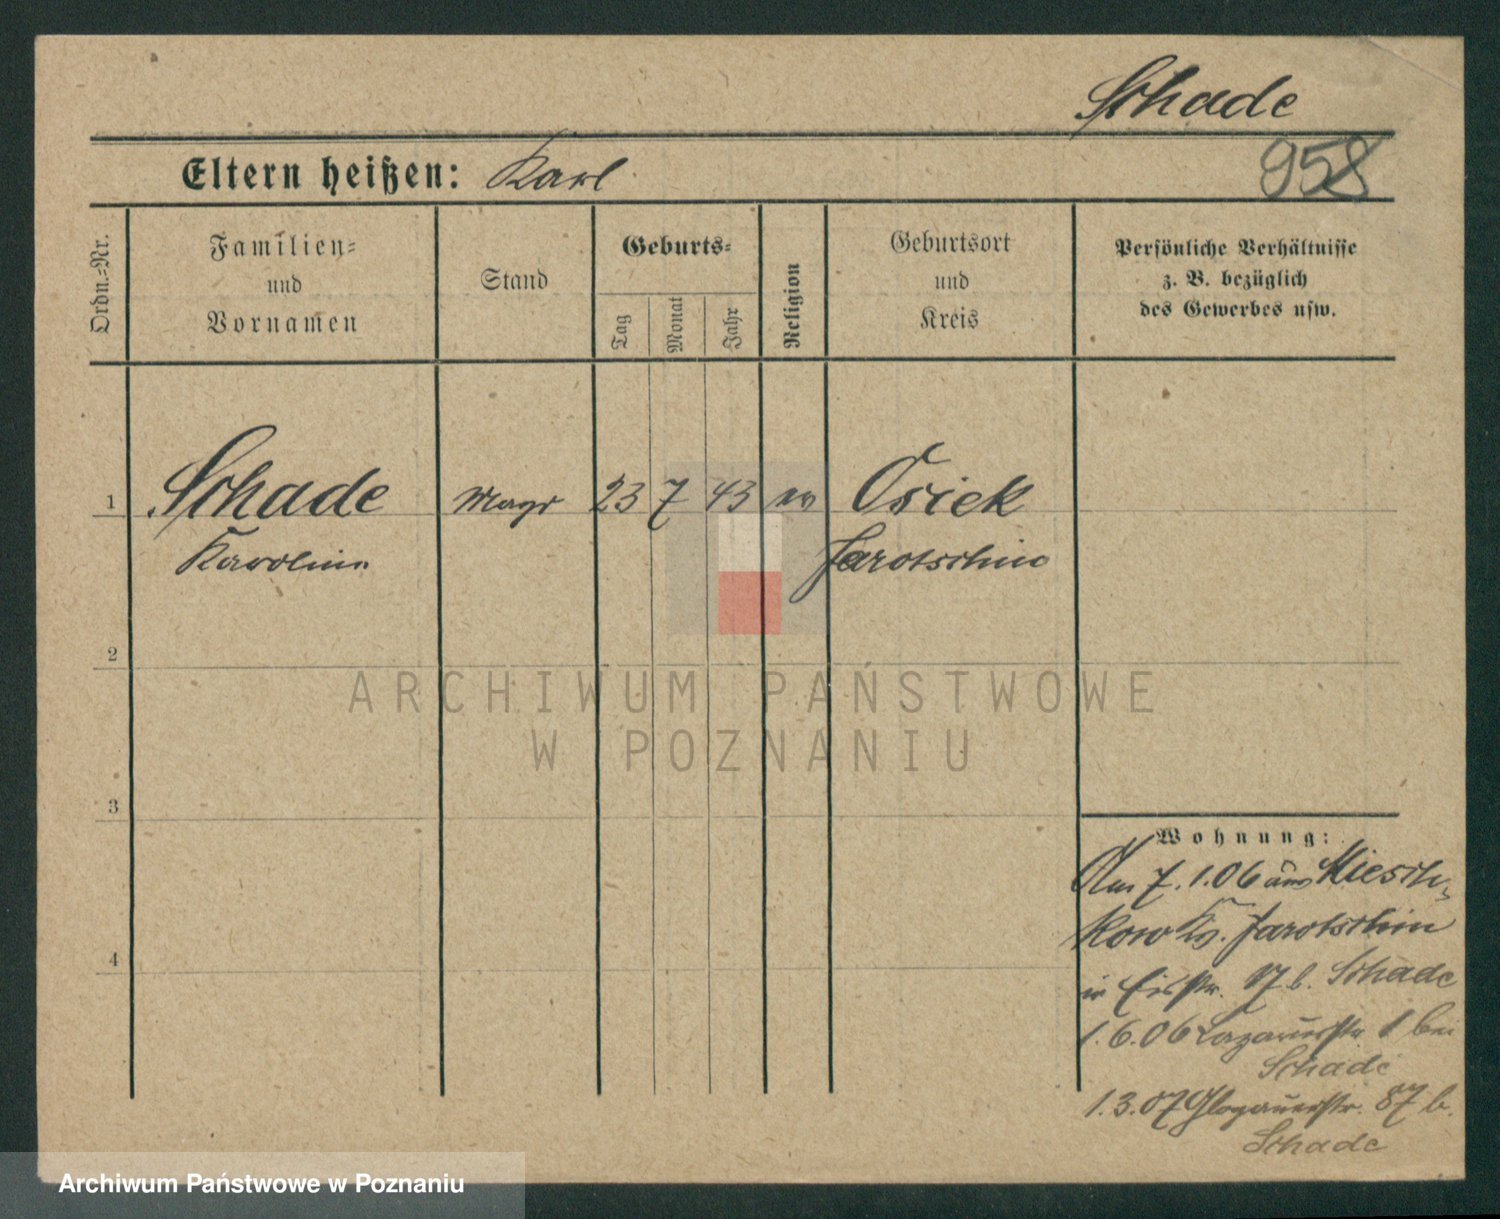 Schade
958
Eltern heißen: Karl
Ordn.-Nr.
Familien-
und
Vornamen
Stand
Geburts-
Tag
Monat
Jahr
Religion
Geburtsort
und
Kreis
Persönliche Verhältnisse
z. B. bezüglich
des Gewerbes usw.
1 Schade 23 7 43 ev Osiek
Karoline Jarotschin
2
3
4
Wohnung:
Am 7.1.06 aus Miesch-
kow Kr. Jarotschin
in 17 b. Schade
1.6.06 Lazarusstr 1 bei
Schade
1.3.07 Glogauerstr. 87 b.
Schade
ARCHIWUM PAŃSTWOWE
W POZNANIU
Archiwum Państwowe w Poznaniu